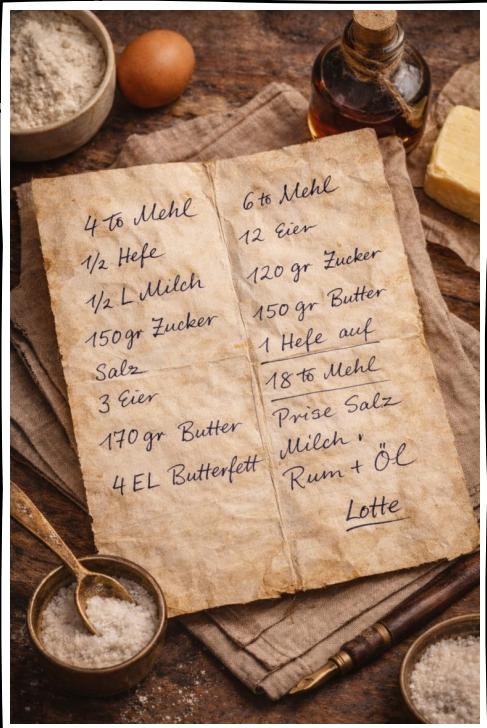 4 to Mehl
1/2 Hefe
1/2 L Milch
150 gr Zucker
Salz
3 Eier
170 gr Butter
4 EL Butterfett
6 to Mehl
12 Eier
120 gr Zucker
150 gr Butter
1 Hefe auf
18 to Mehl
Prise Salz
Milch.
Rum + Öl
Lotte